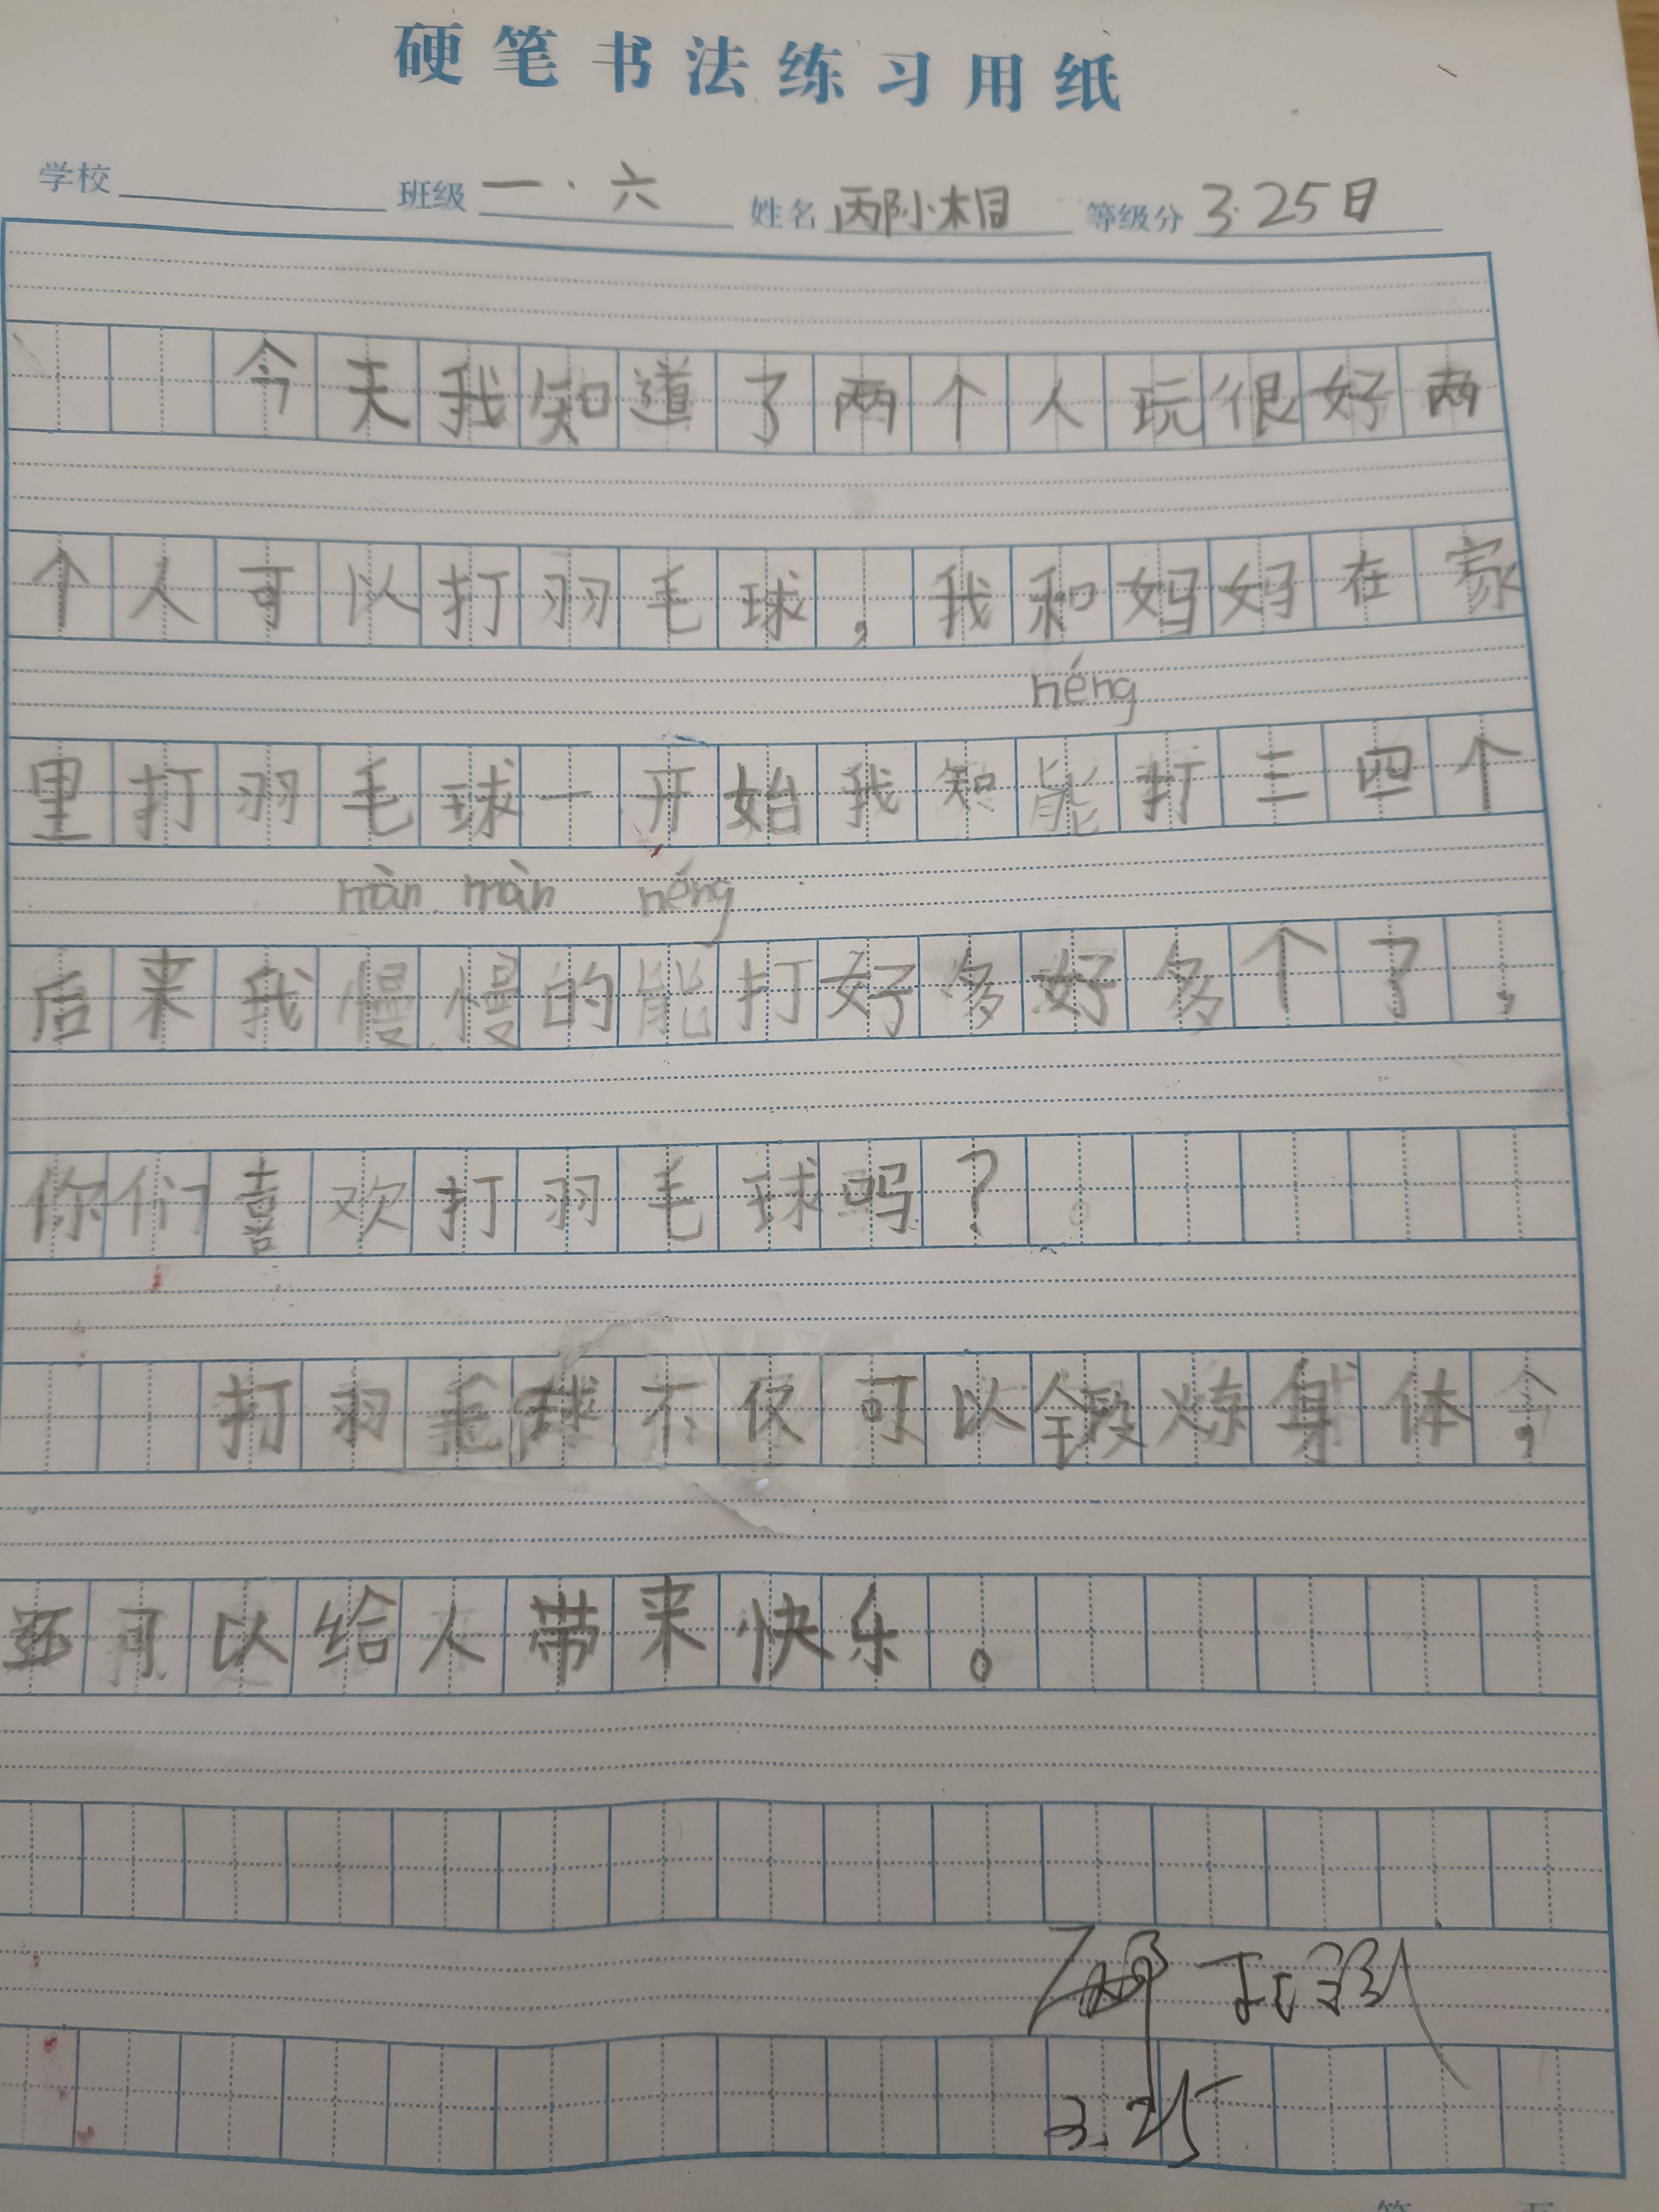 硬笔书法练习用纸
学校 班级 一·六 姓名 邴小桐 等级分 3.25日
今天我知道了两个人玩很好两
个人可以打羽毛球，我和妈妈在家
néng
里打羽毛球一开始我知能打三四个
màn màn néng
后来我慢慢的能打好多好多个了，
你们喜欢打羽毛球吗？。
打羽毛球不仅可以锻炼身体，
还可以给人带来快乐。
3.25